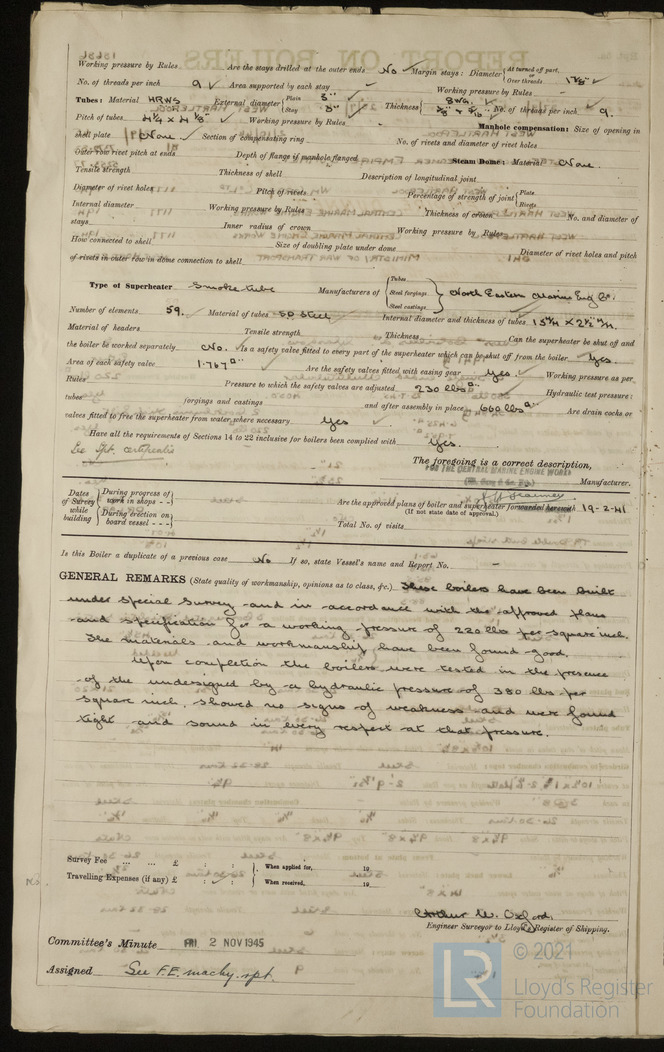 Working pressure by Rules Are the stays drilled at the outer ends No Margin stays: Diameter { At turned off part, Over threads
No. of threads per inch 9 Area supported by each stay Working pressure by Rules
Tubes: Material HRWS External diameter { Plain 3" Stay 3" Thickness { 8 WG. No. of threads per inch 9.
Pitch of tubes 4 1/4 x 4 1/8" Working pressure by Rules Manhole compensation: Size of opening in
shell plate None Section of compensating ring No. of rivets and diameter of rivet holes
Outer row rivet pitch at ends Depth of flange if manhole flanged Steam Dome: Material None
Tensile strength Thickness of shell Description of longitudinal joint
Diameter of rivet holes Pitch of rivets Percentage of strength of joint { Plate Rivets
Internal diameter Working pressure by Rules Thickness of crown No. and diameter of
stays Inner radius of crown Working pressure by Rules
How connected to shell Size of doubling plate under dome Diameter of rivet holes and pitch
of rivets in outer row in dome connection to shell
Type of Superheater Smoke tube Manufacturers of { Tubes Steel forgings Steel castings } North Eastern Marine Eng Co.
Number of elements 59. Material of tubes SD Steel Internal diameter and thickness of tubes 15 m/m x 2 1/2 m/m.
Material of headers Tensile strength Thickness Can the superheater be shut off and
the boiler be worked separately No. Is a safety valve fitted to every part of the superheater which can be shut off from the boiler Yes.
Area of each safety valve 1.767 □" Are the safety valves fitted with easing gear Yes. Working pressure as per
Rules Pressure to which the safety valves are adjusted 230 lbs □" Hydraulic test pressure:
tubes forgings and castings and after assembly in place 660 lbs □" Are drain cocks or
valves fitted to free the superheater from water where necessary Yes
Have all the requirements of Sections 14 to 22 inclusive for boilers been complied with Yes.
See Spt. certificates
The foregoing is a correct description,
FOR THE CENTRAL MARINE ENGINE WORKS
Manufacturer.
Dates of Survey while building { During progress of work in shops - - During erection on board vessel - - - Are the approved plans of boiler and superheater forwarded herewith 19-2-41
(If not state date of approval.)
Total No. of visits
Is this Boiler a duplicate of a previous case No If so, state Vessel's name and Report No. -
GENERAL REMARKS (State quality of workmanship, opinions as to class, &c.) These boilers have been built
under special survey and in accordance with the approved plans
and specification for a working pressure of 220 lbs per square inch.
The materials and workmanship have been found good.
Upon completion the boilers were tested in the presence
of the undersigned by a hydraulic pressure of 380 lbs per
square inch, showed no signs of weakness and were found
tight and sound in every respect at that pressure.
Survey Fee ... ... £ : : When applied for, 19
Travelling Expenses (if any) £ : : When received, 19
Arthur W. Oxford.
Engineer Surveyor to Lloyd's Register of Shipping.
Committee's Minute FRI 2 NOV 1945
Assigned See F.E. machy. rpt.
© 2021
LR
Lloyd's Register
Foundation